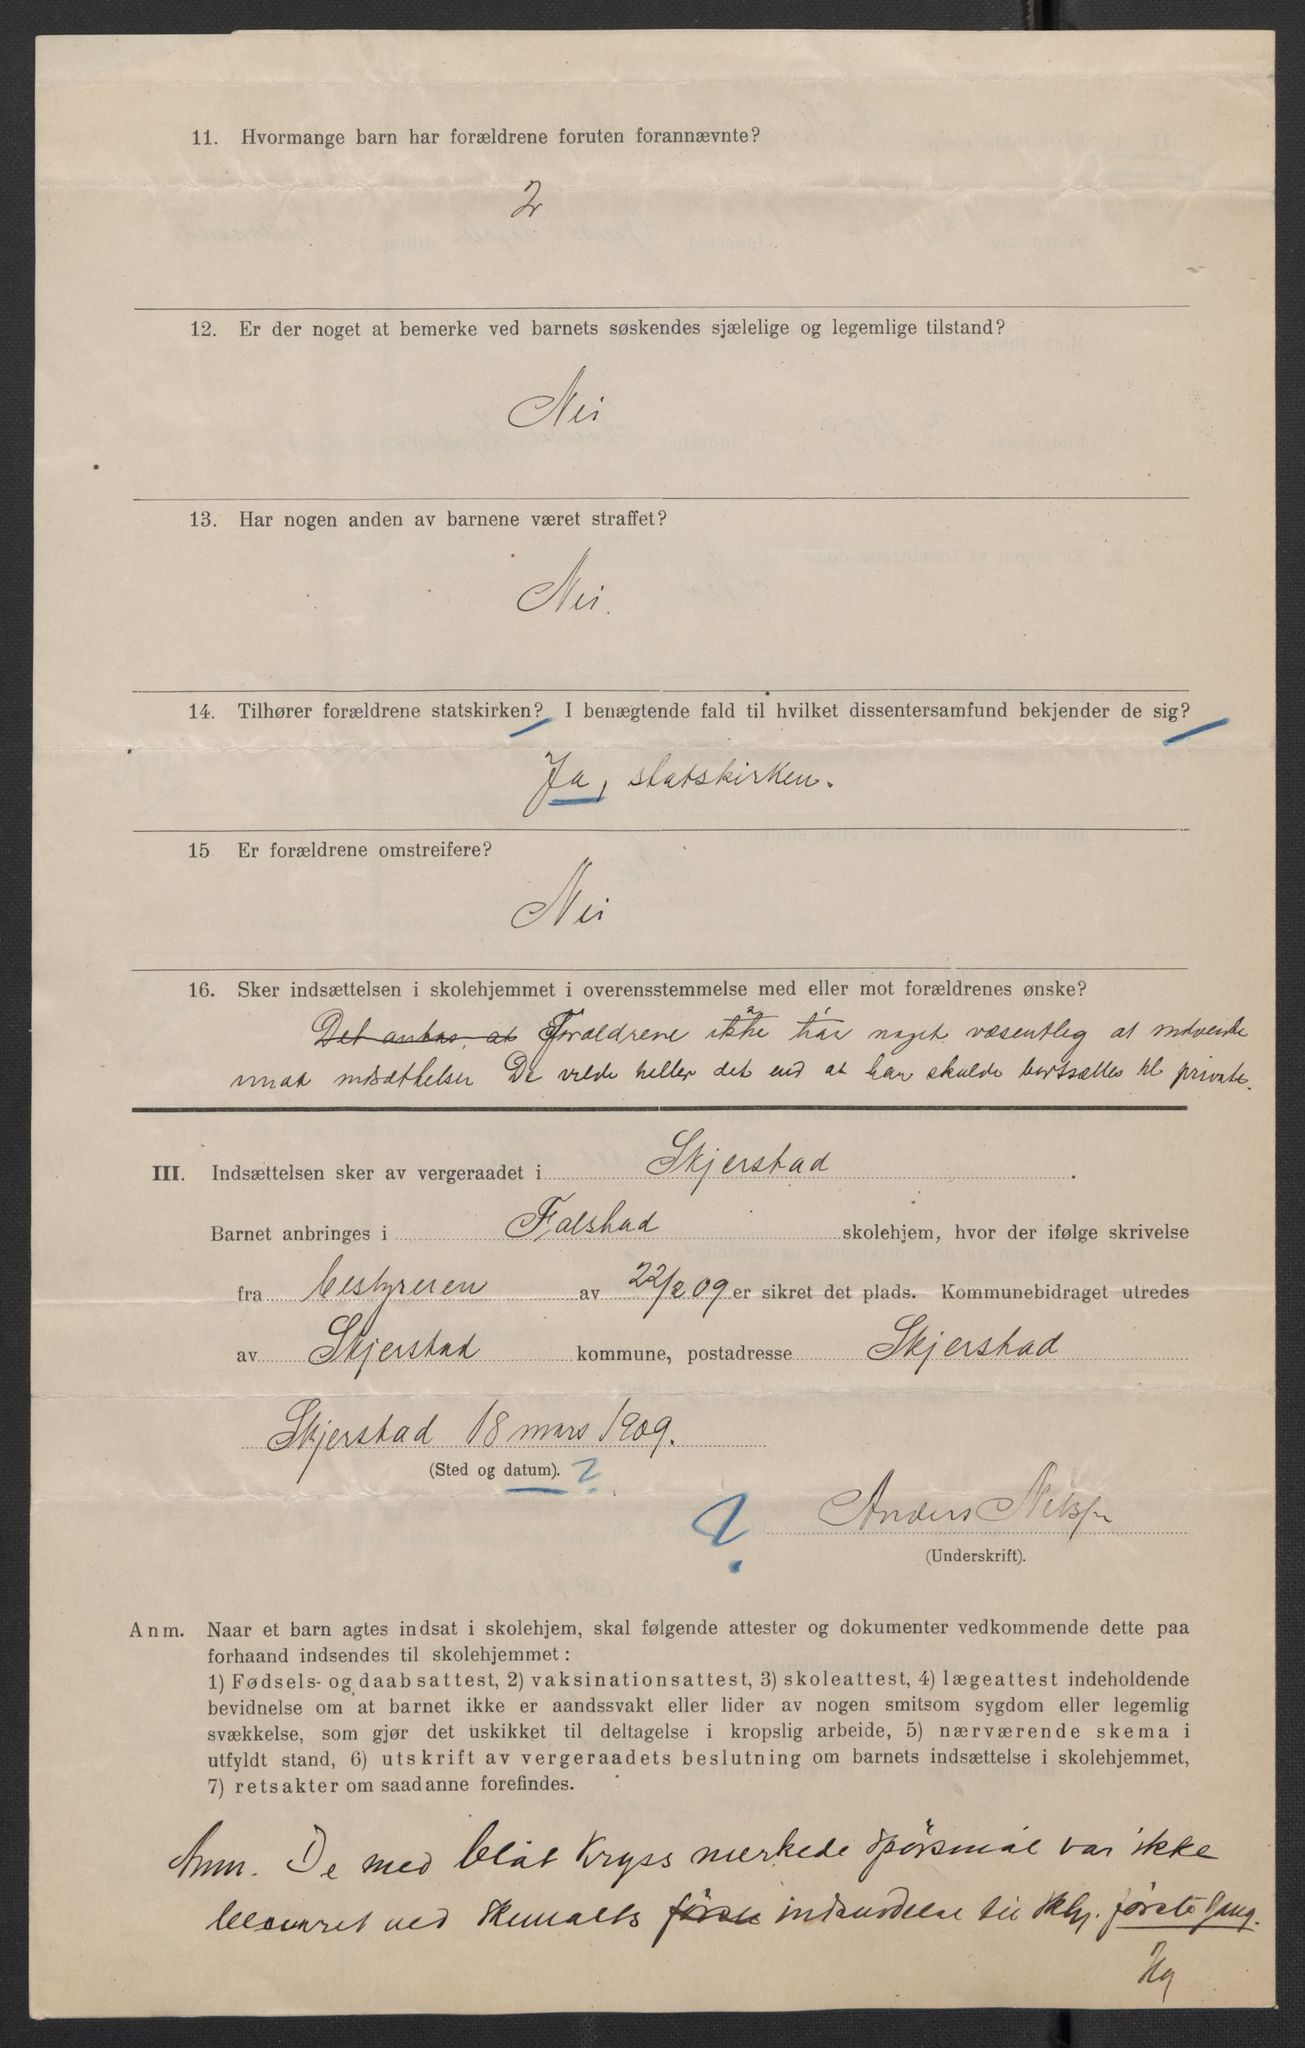 11. Hvormange barn har forældrene foruten forannævnte?
2
12. Er der noget at bemerke ved barnets søskendes sjælelige og legemlige tilstand?
Nei
13. Har nogen anden av barnene været straffet?
Nei.
14. Tilhører forældrene statskirken? I benægtende fald til hvilket dissentersamfund bekjender de sig?
Ja, statskirken.
15 Er forældrene omstreifere?
Nei
16. Sker indsættelsen i skolehjemmet i overensstemmelse med eller mot forældrenes ønske?
Det antas at Forældrene ikke har noget væsentlig at indvende
imod indsættelsen De vilde heller det end at han skulde bortsættes til private.
III. Indsættelsen sker av vergeraadet i Skjerstad.
Barnet anbringes i Falstad skolehjem, hvor der ifølge skrivelse
fra bestyreren av 22/2 09 er sikret det plads. Kommunebidraget utredes
av Skjerstad kommune, postadresse Skjerstad
Skjerstad 18 mars 1909.
(Sted og datum). ?
? Anders Nilsen
(Underskrift).
Anm. Naar et barn agtes indsat i skolehjem, skal følgende attester og dokumenter vedkommende dette paa
forhaand indsendes til skolehjemmet:
1) Fødsels- og daabsattest, 2) vaksinationsattest, 3) skoleattest, 4) lægeattest indeholdende
bevidnelse om at barnet ikke er aandssvakt eller lider av nogen smitsom sygdom eller legemlig
svækkelse, som gjør det uskikket til deltagelse i kropslig arbeide, 5) nærværende skema i
utfyldt stand, 6) utskrift av vergeraadets beslutning om barnets indsættelse i skolehjemmet,
7) retsakter om saadanne forefindes.
Anm. De med blåt Kryss merkede spörsmål var ikke
besvaret ved skemaets förste indsendelse til skhj. förste Gang.